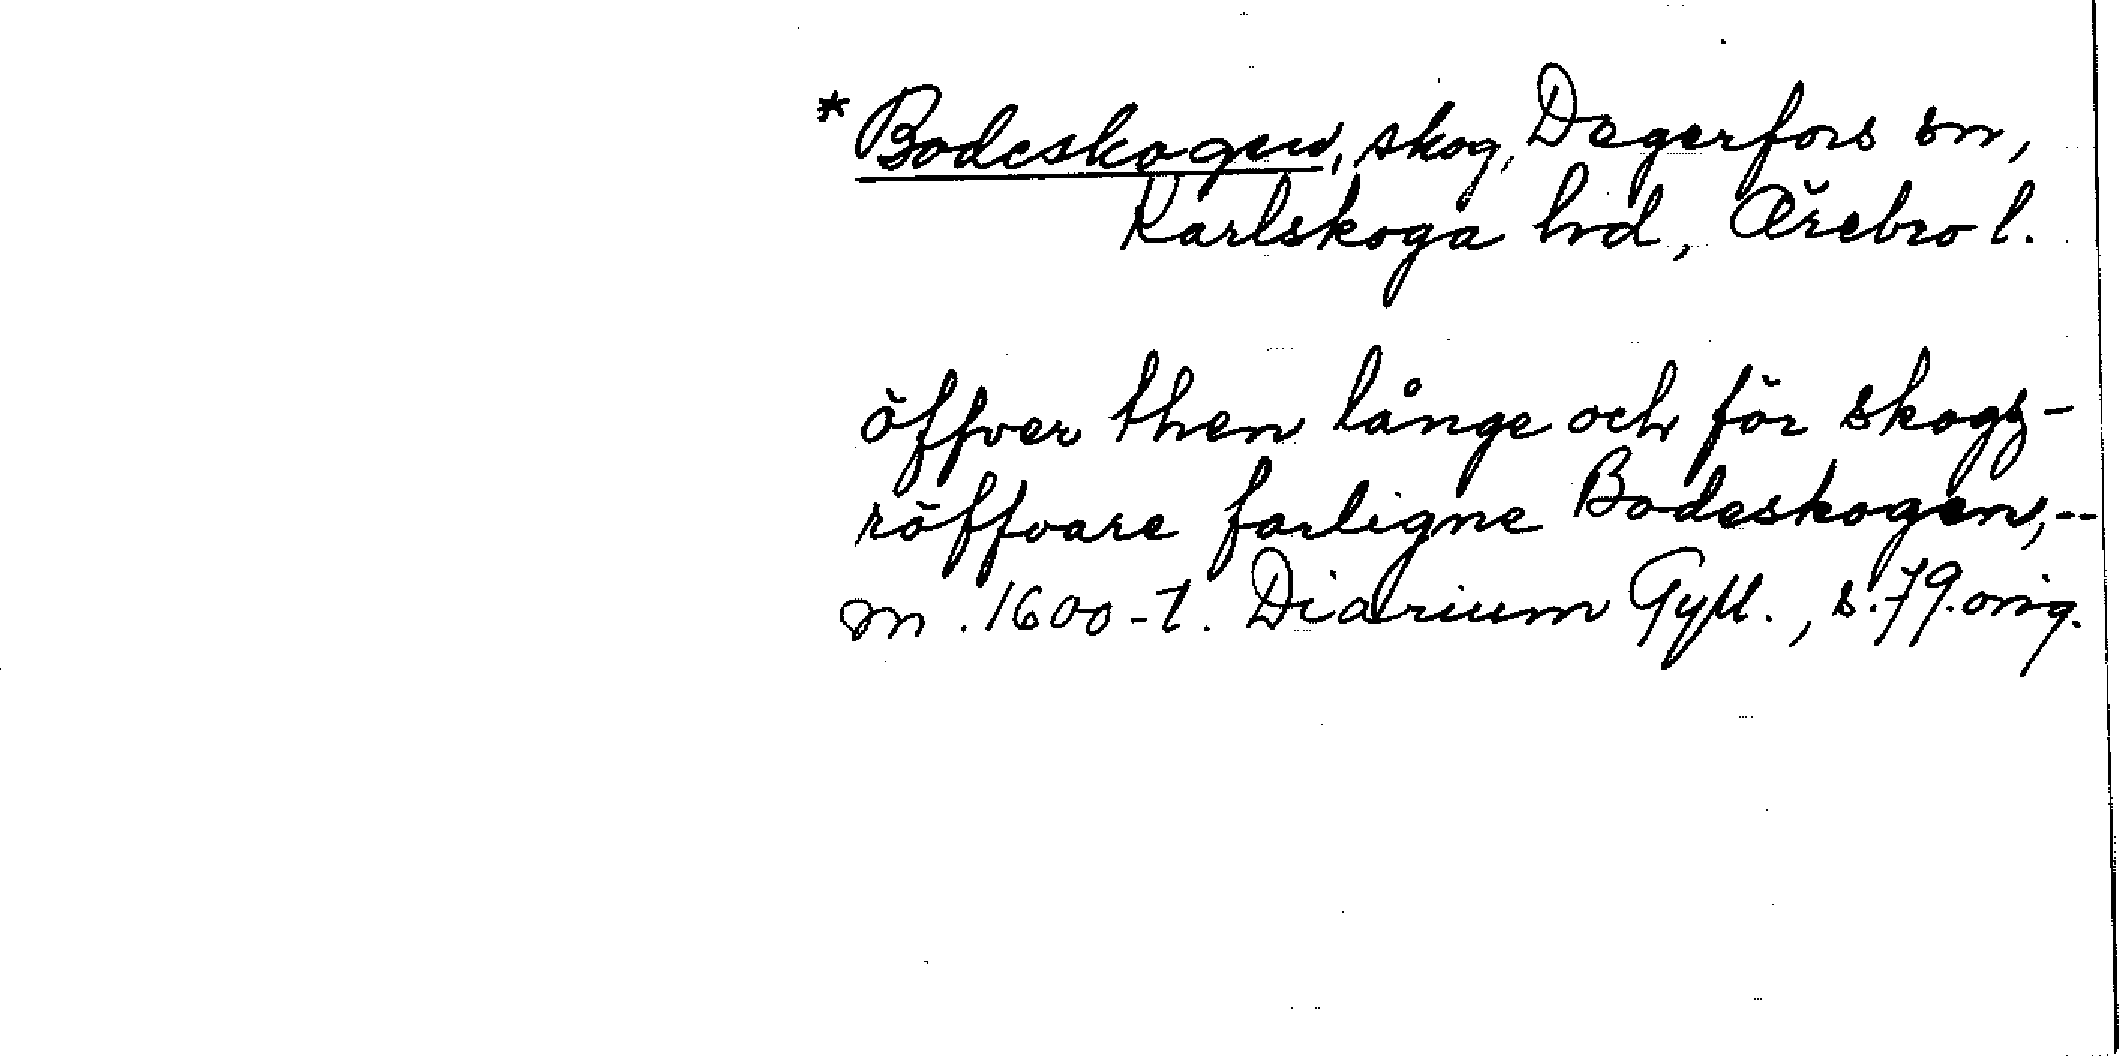 *Bodeskogen, skog, Degerfors sn,
Karlskoga hd, Örebro l.
öffver then långe och för skogz-
röffvare farligne Bodeskogen,--
m. 1600-t. Diarium Gyll., s. 79. orig.